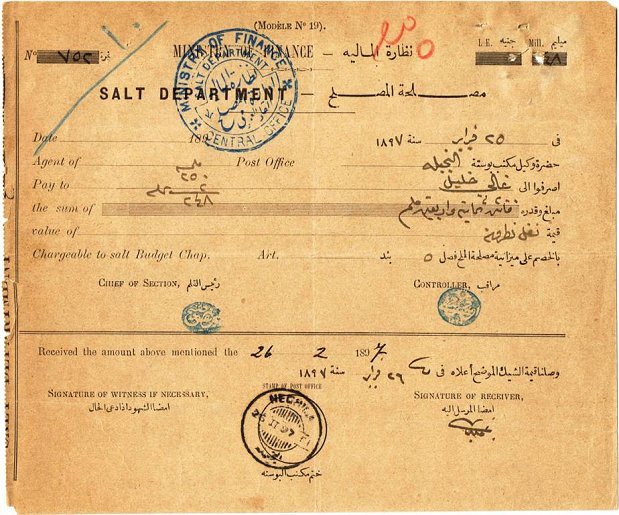 (MODÈLE Nº 19).
Nº ٧٥٢ نمرة
MINISTRY OF FINANCE — نظارة المالية
L.E. جنيه Mill. مليم
٢٤٨
SALT DEPARTMENT — مصلحة الملح
MINISTRY OF FINANCE
SALT DEPARTMENT
CENTRAL OFFICE
Date 189
فى ٢٥ فبراير سنة ١٨٩٧
Agent of Post Office
حضرة وكيل مكتب بوستة النجيله
Pay to
اصرفوا الى غالى خليل
٢٥٠
٢
٢٤٨
the sum of
مبلغ وقدره
value of
قيمة
Chargeable to salt Budget Chap. Art.
بند
بالخصم على ميزانية مصلحة الملح فصل ٥
CHIEF OF SECTION, رئيس القلم
CONTROLLER, مراقب
Received the amount above mentioned the 26 2 1897
وصلنا قيمة الشيك الموضح أعلاه فى ٢٦ فبراير سنة ١٨٩٧
SIGNATURE OF WITNESS IF NECESSARY,
امضا الشهود اذا دعى الحال
STAMP OF POST OFFICE
SIGNATURE OF RECEIVER,
امضا المرسل اليه
NECHILA
ختم مكتب البوسته